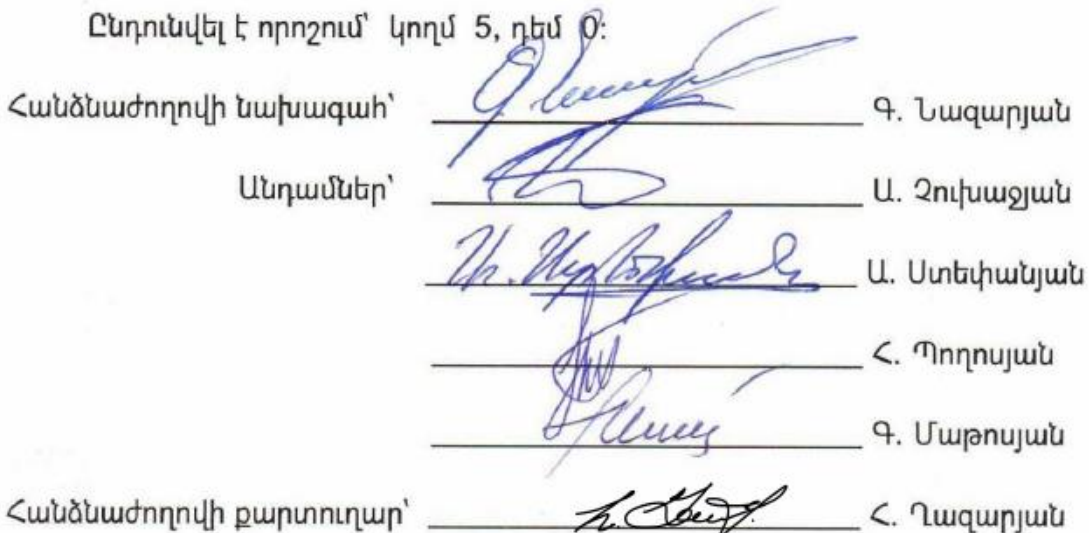 Ընդունվել է որոշում՝ կողմ 5, դեմ 0:
Հանձնաժողովի նախագահ՝ Գ. Նազարյան
Անդամներ՝ Ա. Չուխաջյան
Ա. Ստեփանյան
Հ. Պողոսյան
Գ. Մաթոսյան
Հանձնաժողովի քարտուղար՝ Հ. Ղազարյան